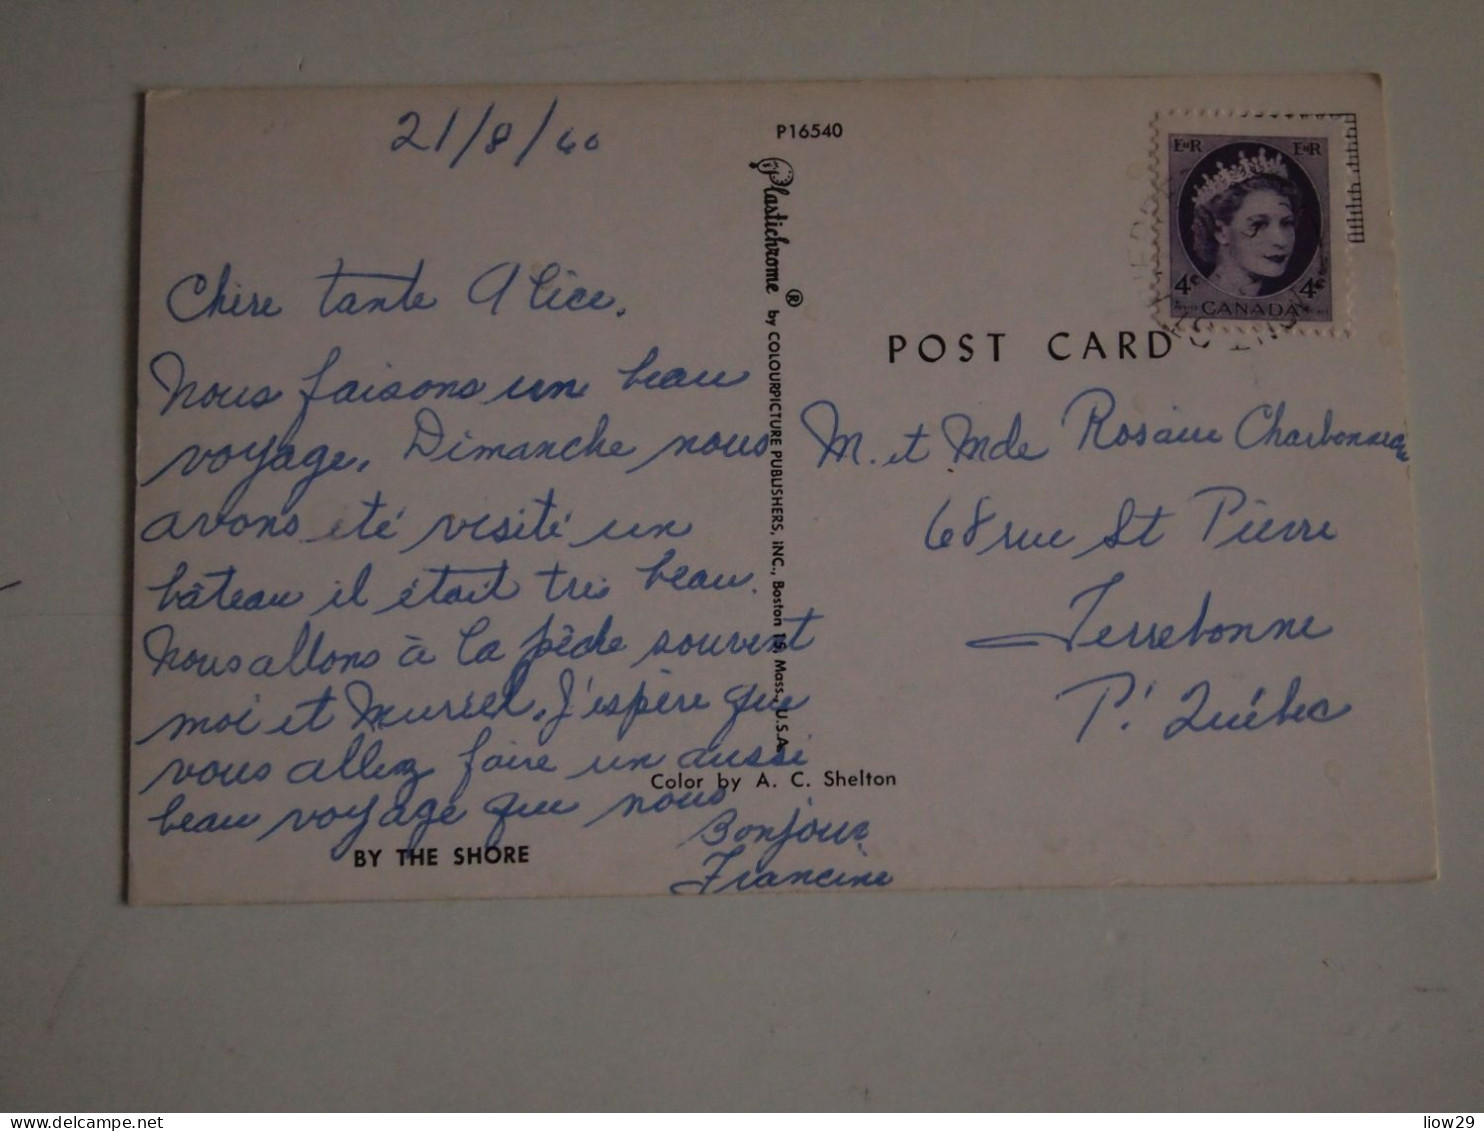 21/8/60
Chère tante Alice,
Nous faisons un beau
voyage. Dimanche nous
avons été visité un
bâteau il était très beau.
Nous allons à la pêche souvent
moi et Muriel. J'espère que
vous allez faire un aussi
beau voyage que nous
Bonjour,
Francine
BY THE SHORE
P16540
Plastichrome® by COLOURPICTURE PUBLISHERS, INC., Boston 15, Mass., U.S.A.
Color by A. C. Shelton
EIIR EIIR
4¢ 4¢
CANADA
POST CARD
M. et Mde Rosaire Charbonneau
68 rue St Pierre
Terrebonne
P. Québec
liow29